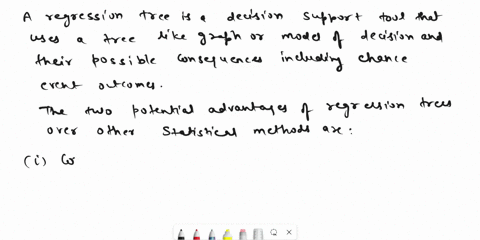 A regression tree is a decision support tool that
uses a tree like graph or model of decision and
their possible consequences including chance
event outcomes.
The two potential advantages of regression trees
over other statistical methods are:
(i) Co